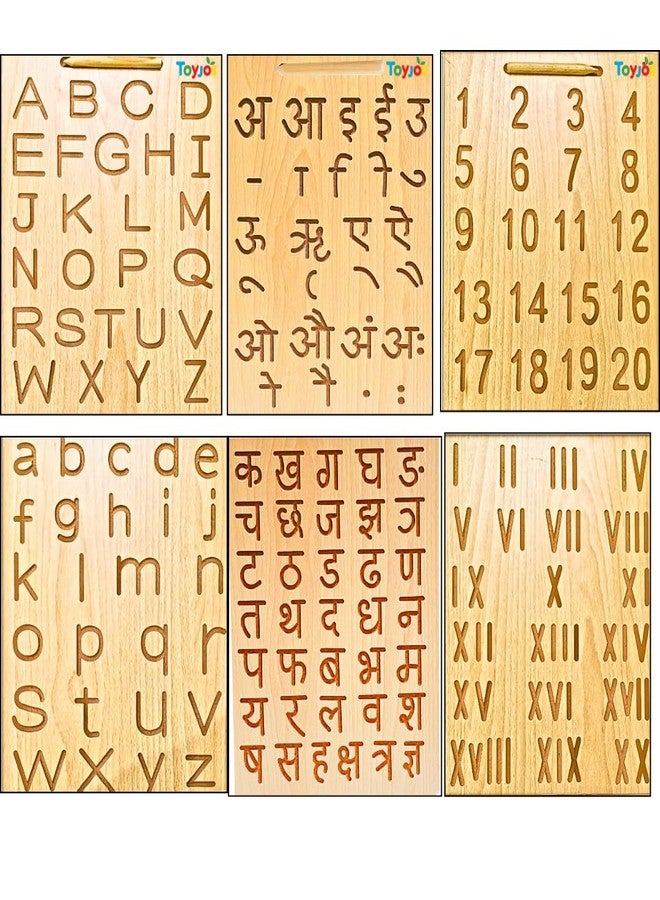 Toyjoy
A B C D
E F G H I
J K L M
N O P Q
R S T U V
W X Y Z
Toyjoy
अ आ इ ई उ
- ा ि ी ु
ऊ ऋ ए ऐ
ू ृ े ै
ओ औ अं अः
ो ौ ं ः
Toyjoy
1 2 3 4
5 6 7 8
9 10 11 12
13 14 15 16
17 18 19 20
a b c d e
f g h i j
k l m n
o p q r
s t u v
w x y z
क ख ग घ ङ
च छ ज झ ञ
ट ठ ड ढ ण
त थ द ध न
प फ ब भ म
य र ल व श
ष स ह क्ष त्र ज्ञ
I II III IV
V VI VII VIII
IX X XI
XII XIII XIV
XV XVI XVII
XVIII XIX XX